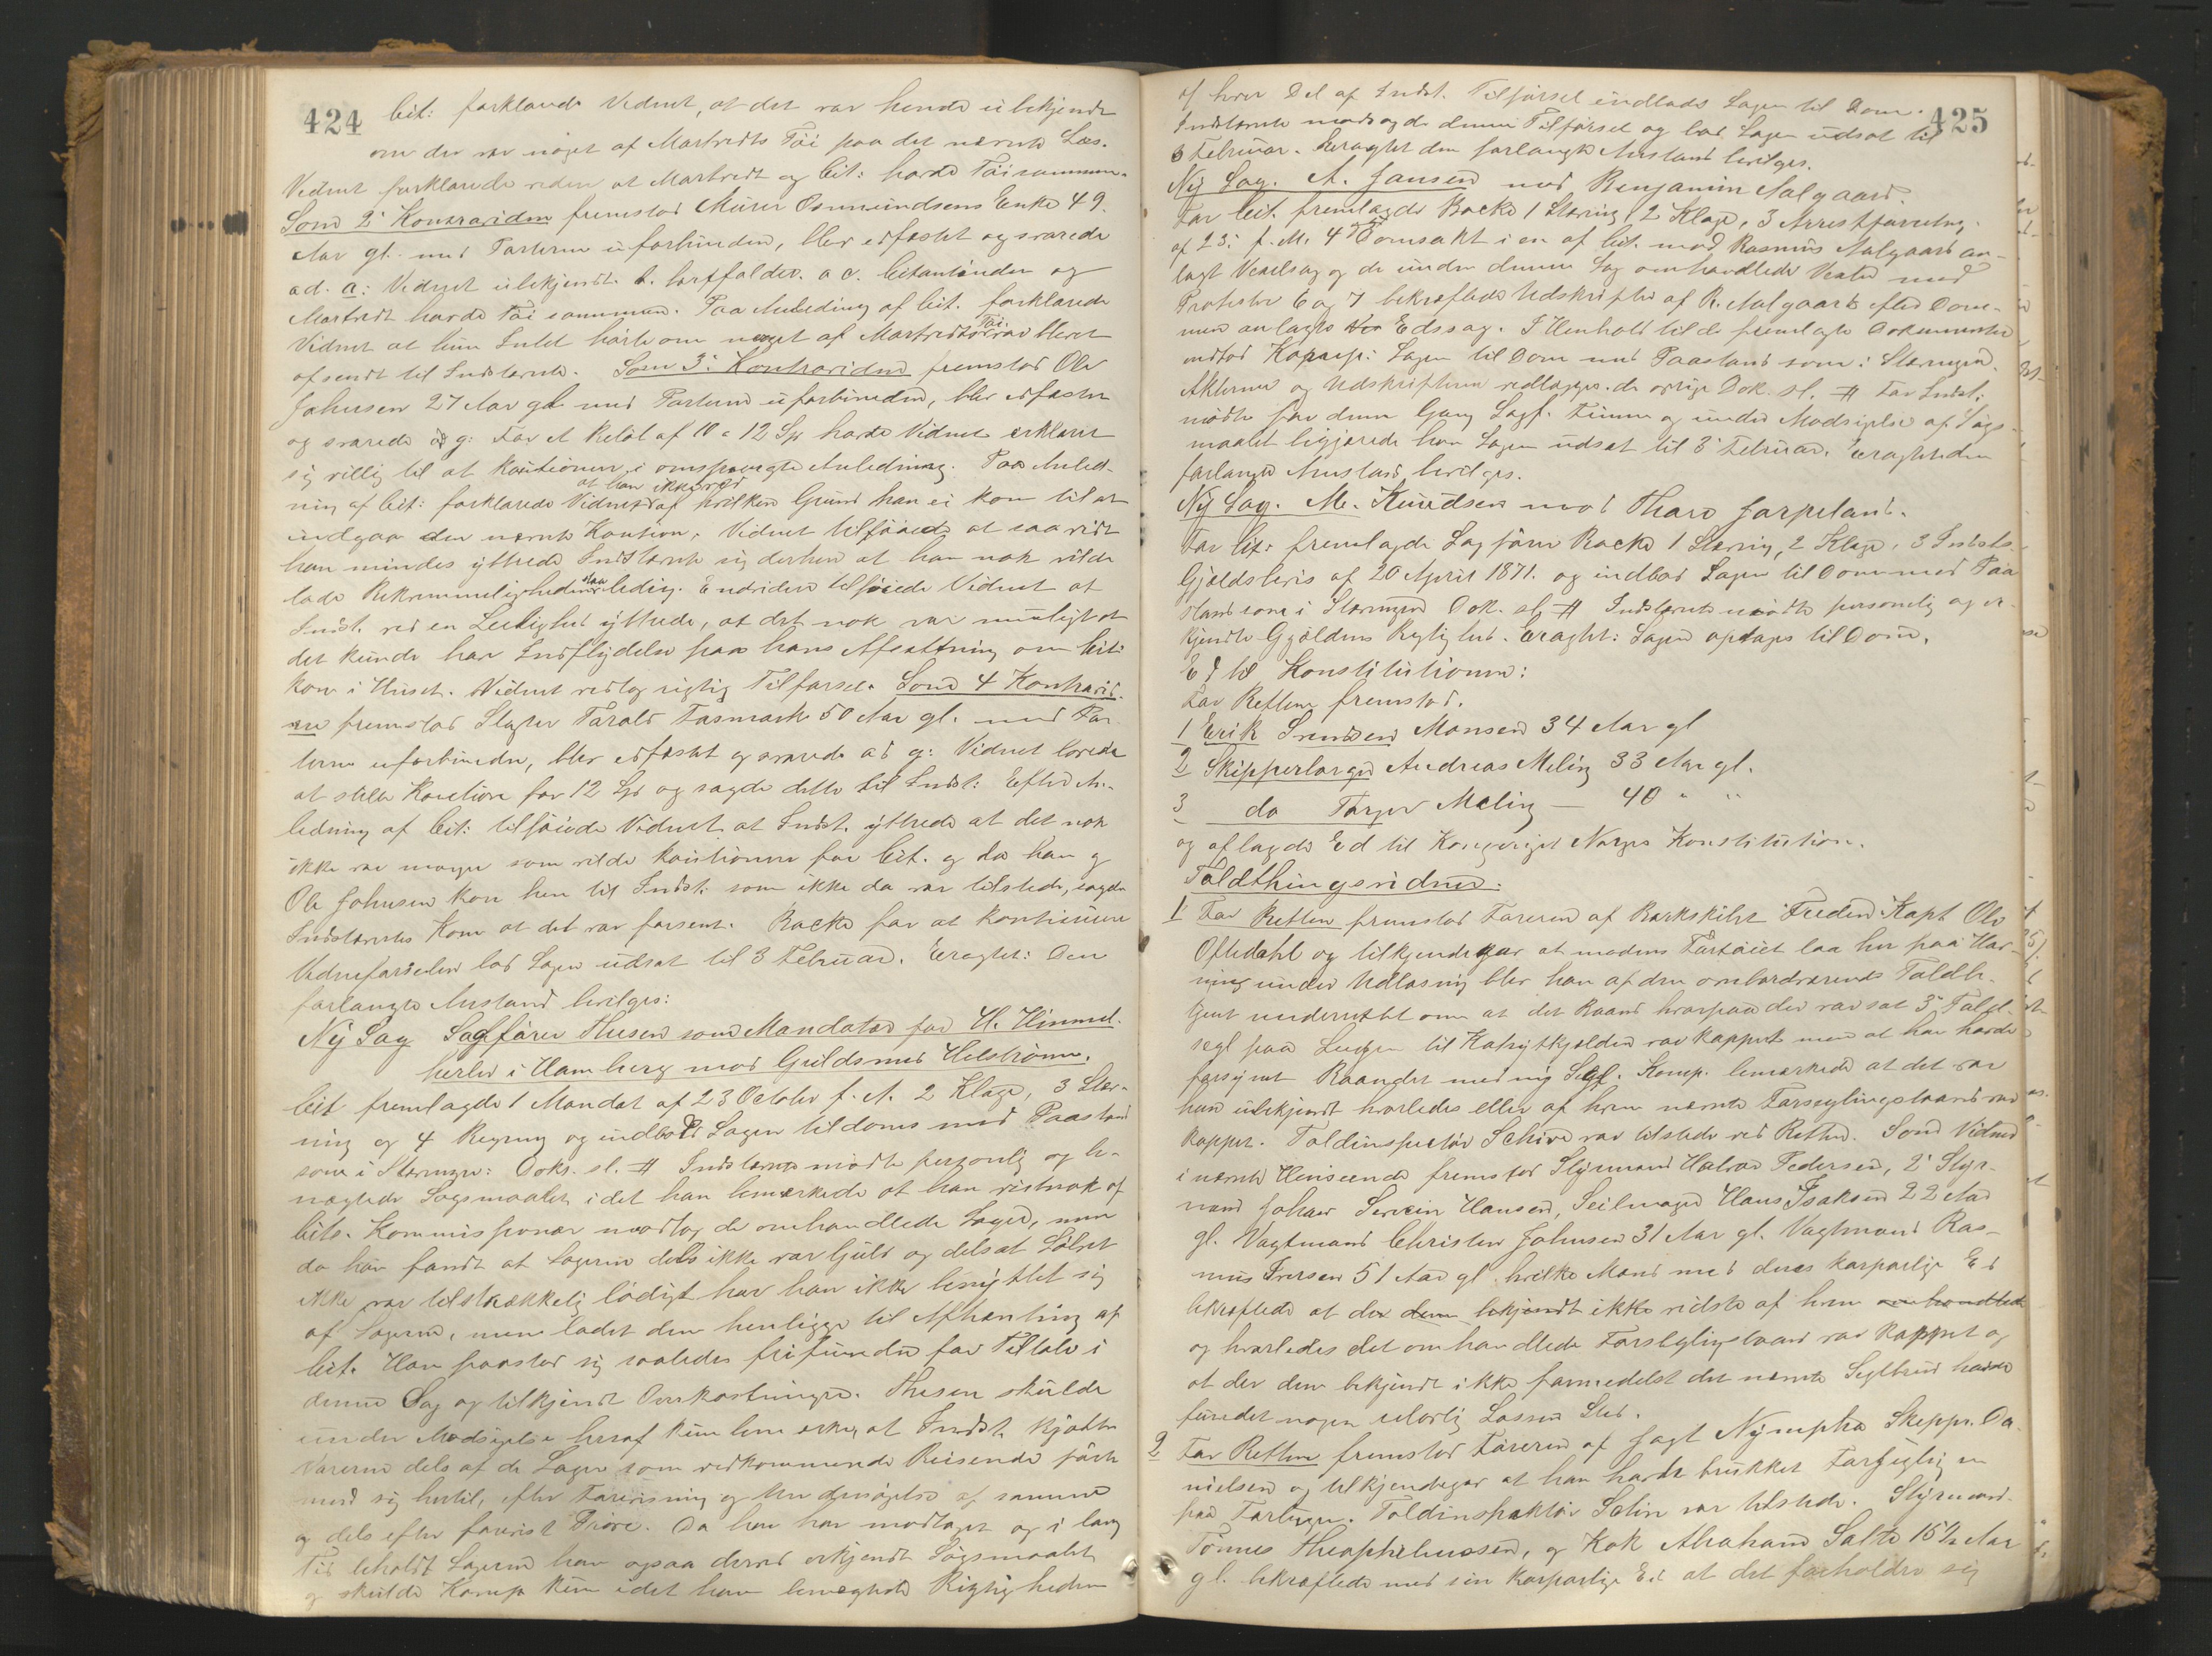 424
Cit: forklarede Vidnet, at det var hende ubekjendt
om der var noget af Martredts Töi paa det nævnte Læs.
Vidnet forklarede videre at Martredt og Cit: havde Töi sammen.
Som 2' Kontravidne fremstod Murer Osmundsens Enke 49
Aar gl. med Parterne uforbunden, blev edfæstet og svarede
ad. a: Vidnet ubekjendt. b. bortfalder. a c. Citantinden og
Martredt havde Töi sammen. Paa Anledning af Cit. forklarede
Vidnet at hun Intet hörte om noget af Martredts Töi var blevet
afsendt til Indstævnte. Som 3' Kontravidne fremstod Ole
Johnsen 27 Aar gl. med Parterne uforbunden, blev edfæstet
og svarede ad g: For et Belöb af 10 a 12 Spd havde Vidnet erklæret
sig villig til at kautionere i omspurgte Anledning. Paa Anled-
ning af Cit: forklarede Vidnet at han ikke ved af hvilken Grund han ei kom til at
indgaa den nævnte Kaution. Vidnet tilföiede at saavidt
han mindes yttrede Indstævnte sig derhen at han nok vilde
lade Bekvemmeligheden staa ledig. Endvidere tilföiede Vidnet at
Indst. ved en Leilighed yttrede, at det nok var muligt at
det kunde have Indflydelse paa hans Afsættning om Cit:
kom i Huset. Vidnet vedtog rigtig Tilförsel. Som 4 Kontravid-
ne fremstod Slagter Tarald Fasmark 50 Aar gl. med Par-
terne uforbunden, blev edfæstet og svarede ad g: Vidnet lovede
at stille Kaution for 12 Spd og sagde dette til Indst: Efter An-
ledning af Cit: tilföiede Vidnet at Indst. yttrede at det nok
ikke var mange som vilde kautionere for Cit. og da han og
Ole Johnsen kom hen til Indst. som ikke da var tilstede, sagde
Indstævntes Kone at det var forsent. Backe for at kontinuere
Vidneförselen bad Sagen udsat til 3 Februar. Eragtet: Den
forlangte Anstand bevilges:
Ny Sag Sagförer Thesen som Mandatar for H. Himmel-
herler i Hamburg mod Guldsmed Helström.
Cit fremlagde 1 Mandat af 23 October f. A. 2 Klage, 3 Stæv-
ning og 4 Regning og indbød Sagen til doms med Paastand
som i Stævningen: Doks. sl. # Indstævnte mödte personlig og be-
nægtede Sagsmaalet idet han bemærkede at han vistnok af
Cits. Kommissionær modtog de omhandlede Sager, men
da han fandt at Sagerne dels ikke var Guld og dels at Sölvet
ikke var tilstrækkelig lödigt har han ikke benyttet sig
af Sagerne, men ladet dem henligge til Afhentning af
Cit. Han paastod sig saaledes frifunden for Tiltale i
denne Sag og tilkjendt Omkostninger. Thesen skulde
under Modsigelse heraf kun bemærke, at Indst. kjöbte
Varerne dels af de Sager som vedkommende Reisende förte
med sig hertil, efter Forevisning og Undersögelse af samme
og dels efter forevist Pröve. Da han har modtaget og i lang
Tid beholdt Sagerne har ogsaa derved erkjendt Sögsmaalet
og skulde Komp. kun idet han benægtede Rigtigheden
425
af hver Del af Indst. Tilförsel indlade Sagen til Dom.
Indstævnte modsagde denne Tilförsel og bad Sagen udsat til
3 Februar. Eragtet den forlangte Anstand bevilges.
Ny Sag. A. Jansen mod Benjamin Aalgaard.
For Cit. fremlagde Backe 1 Stævning, 2 Klage, 3 Arrestforretng.
af 23' f. M. 4 Domsakt i en af Cit. mod Rasmus Aalgaard an-
lagt Vexelsag og de under denne Sag omhandlede Vexler med
Protester 6 og 7 bekræftede Udskrifter af R. Aalgaards efter Dom-
men anlagte Edssag. I Henhold til de fremlagte Dokumenter
indlod Komp: Sagen til Dom med Paastand som i Stævningen.
Akterne og Udskrifterne vedlægges. de övrige Dok. sl. # For Indst.
mödte for denne Gang Sagf. Timme og under Modsigelse af Sögs-
maalet begjærede han Sagen udsat til 3' Februar. Eragtet den
forlangte Anstand bevilges.
Ny Sag. M. Knudsen mod Thore Jarpeland.
For Cit: fremlagde Sagförer Backe 1 Stævning, 2 Klage, 3 Indsts.
Gjældsbevis af 20 April 1871. og indbad Sagen til Dom med Paa
stand som i Stævningen Dok. sl. # Indstævnte mödte personlig og er-
kjendte Gjældens Rigtighed. Eragtet: Sagen optages til Dom.
Ed til Konstitutionen:
For Retten fremstod.
1 Erik Svendsen Monsen 34 Aar gl
2 Skipperborger Andreas Meling 33 Aar gl.
3 do Torger Meling — 40 " "
og aflagde Ed til Kongeriget Norges Konstitution.
Toldthingsvidner:
1 For Retten fremstod Föreren af Barkskibet Freden Kapt Ole
Oftedahl og tilkjendegav at medens Fartöiet laa her paa Hav-
nen under Udlosning blev han af den ombordværende Toldbe-
tjent underrettet om at det Baand hvorpaa der var sat 3' Told-
segl paa Lugen til Kahytkjelderen var kappet men at han havde
forsynet Baandet med ny Segl. Komp. bemærkede at det var
ham ubekjendt hvorledes eller af hvem nævnte Forseglingsbaand var
kappet. Toldinspektör Schive var tilstede ved Retten. Som Vidner
i nævnte Henseende fremstod Styrmand Halvor Pedersen, 2' Styr-
mand Johan Severin Hansen, Seilmager Hans Isaksen 22 Aar
gl. Vagtmand Christen Johnsen 31 Aar gl. Vagtmand Ras-
mus Iversen 51 Aar gl. hvilke Mænd med deres korporlige Ed
bekræftede at der dem bekjendt ikke vidste af hvem omhandlede
og hvorledes det omhandlede Forseglingsbaand var kappet og
at der dem bekjendt ikke formedelst det nævnte Seglbrud havde
fundet nogen ulovlig Losning Sted.
2 For Retten fremstod Föreren af Jagt Nympha Skipper Da-
nielsen og tilkjendegav at han havde brukket Forsegling en
paa Fartöiet. Toldinspektör Schive var tilstede. Styrmand
Tönnes Theophiliussen, og Kok Abraham Salte 15 1/2 Aar
gl. bekræftede med sin korporlige Ed at det forholder sig